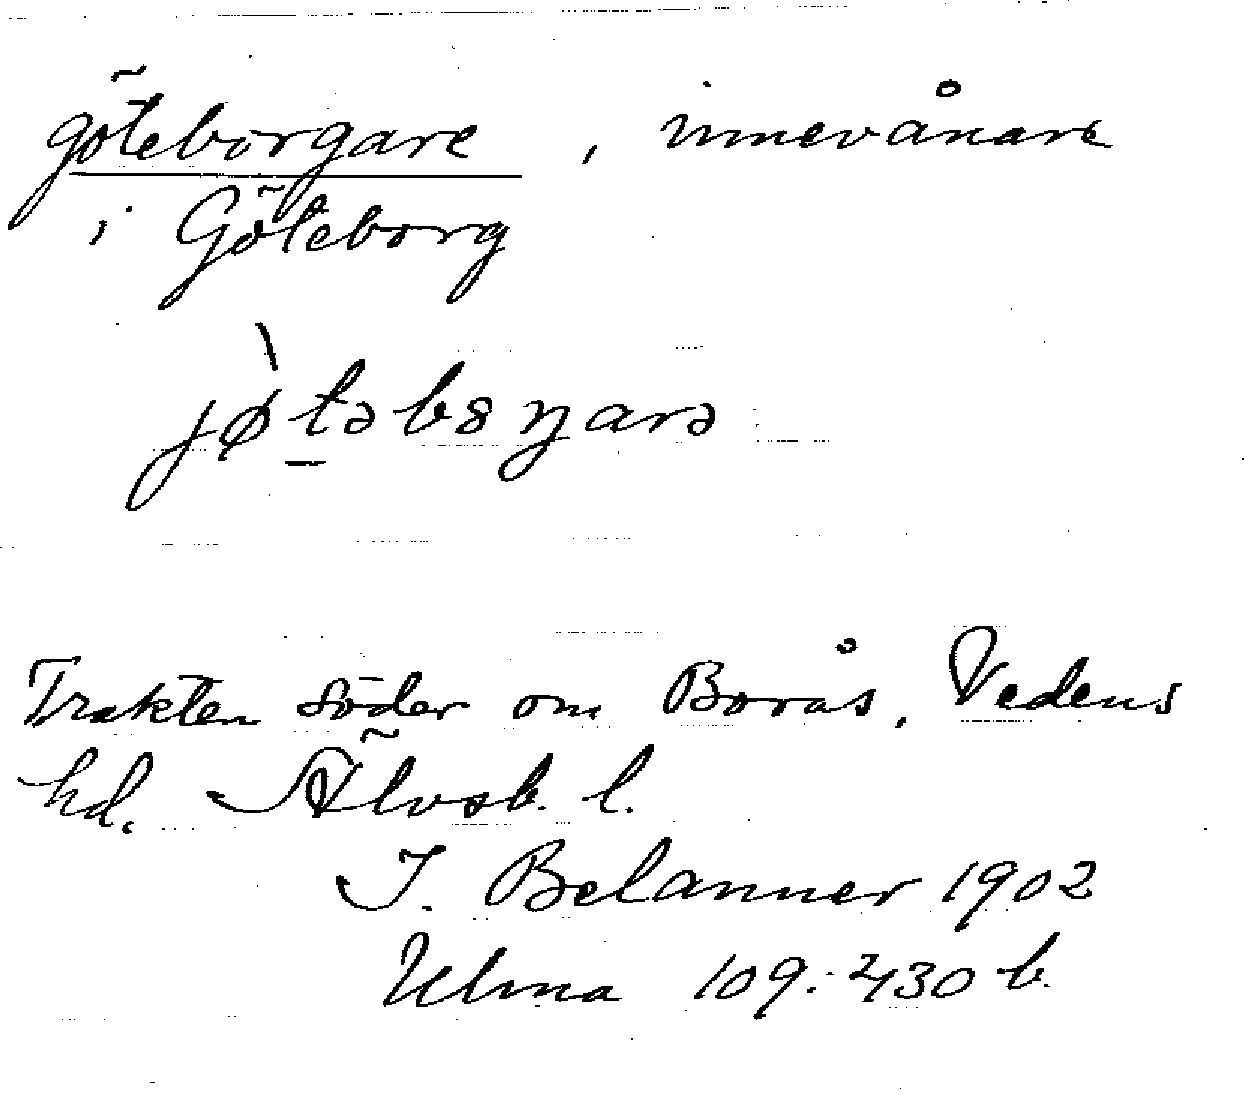 göteborgare, innevånare
i Göteborg
jø̀təbɞŋarə
Trakten söder om Borås, Vedens
hd. Älvsb. l.
J. Belanner 1902
Ulma 109:430 b.